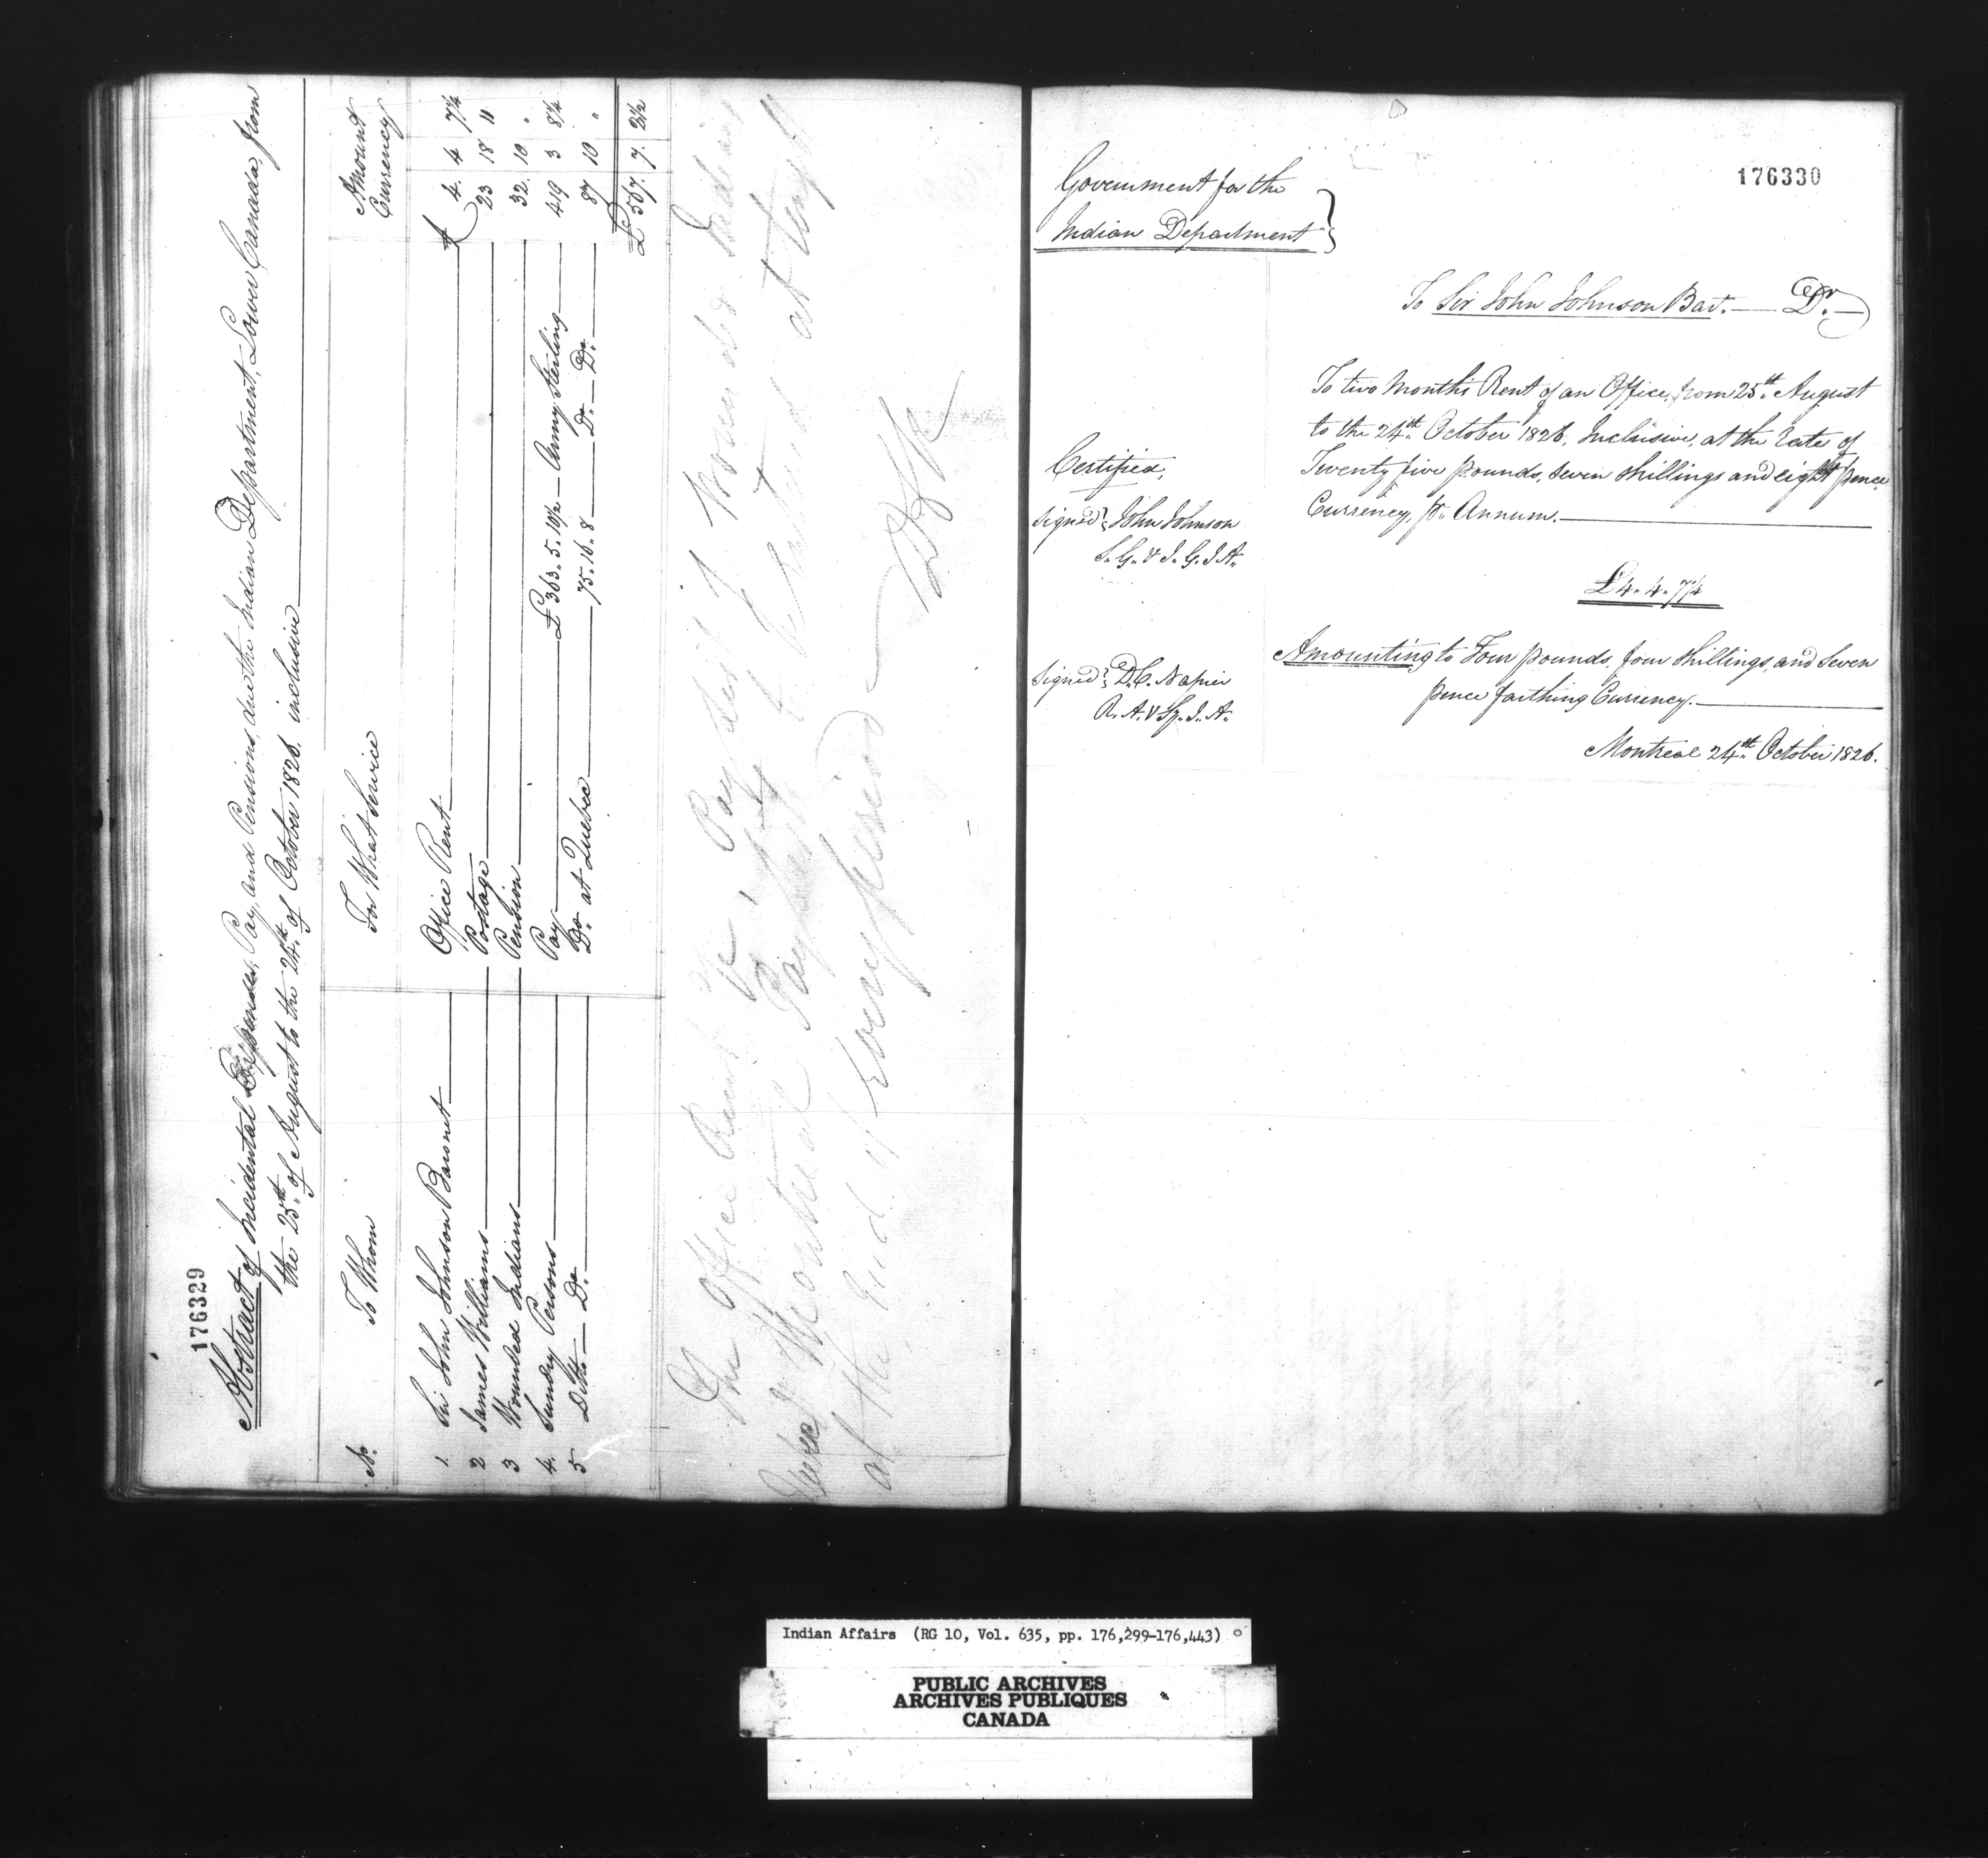 176329
Abstract of Incidental Expenses, Pay, and Pensions, due the Indian Department, Lower Canada, from
the 25th of August to the 24th of October 1826. inclusive
No. To Whom For What Service Amount Currency
1. Sir John Johnson Baronet Office Rent £ 4. 4 7¼
2 James Williams Postage 23 18 11
3 Wounded Indians Pension 32. 10 "
4. Sundry Persons Pay £363.. 5. 10½ Army Sterling 419 3 8¼
5 Ditto Do. Do. at Quebec 75. 16. 8 Do. Do. 87 10 "
£ 567. 7. 2½
The Office Rent Pay list of Wounded Indians
Quebec & Montreal Paylist to be stated at length
at the end of every period
176330
Government for the
Indian Department }
To Sir John Johnson Bart. — Dr.
To two Months Rent of an Office, from 25th August
to the 24th October 1826. Inclusive, at the Rate of
Twenty five pounds, seven shillings and eight pence
Currency, pr. Annum.
£4.. 4.. 7¼
Amounting to Four pounds, four shillings, and Seven
pence farthing Currency.
Montreal 24th October 1826.
Certified,
Signed} John Johnson
S. G. & I. G. I. A.
Signed} D. C. Napier
R. A. & Sy. I. A.
Indian Affairs (RG 10, Vol. 635, pp. 176,299-176,443)
PUBLIC ARCHIVES
ARCHIVES PUBLIQUES
CANADA